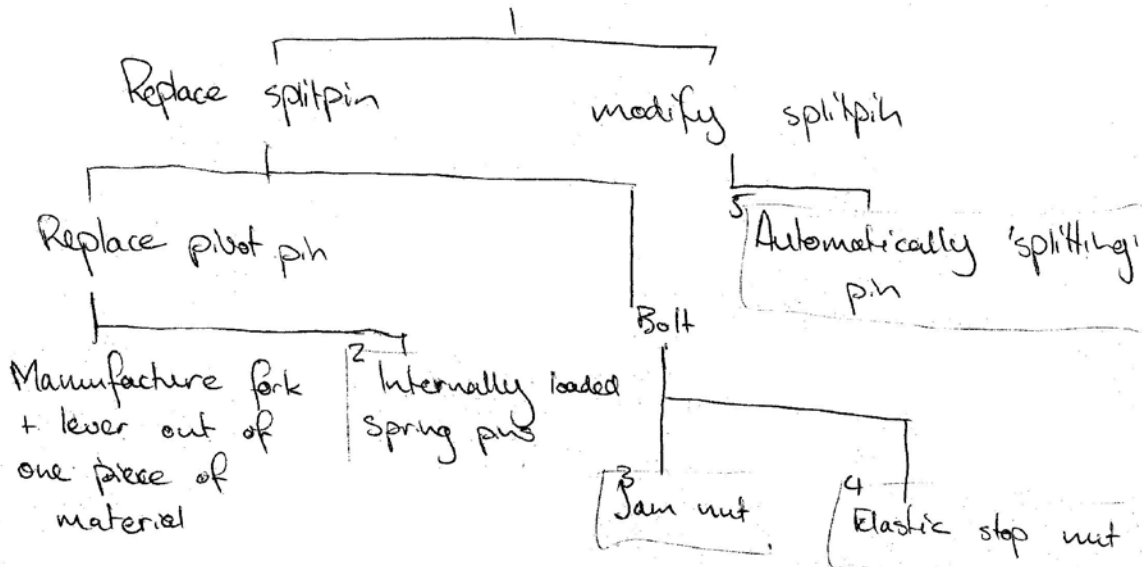 Replace splitpin
modify splitpin
Replace pivot pin
5
Automatically 'splitting'
pin
Bolt
Manufacture fork
+ lever out of
one piece of
material
2
Internally loaded
spring pins
3
Jam nut
4
Elastic stop nut